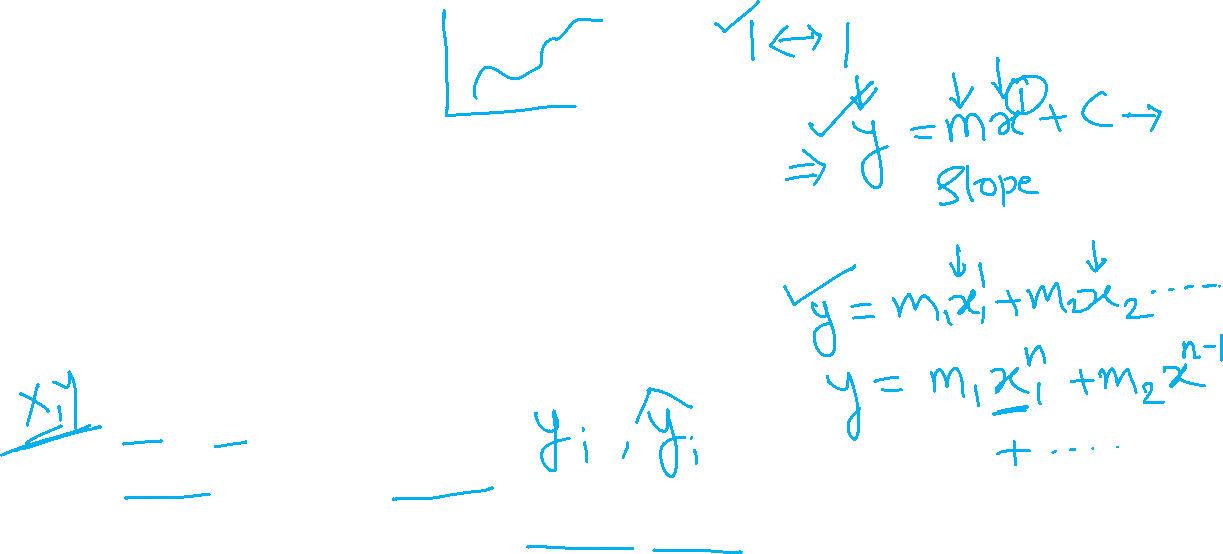 1 ↔ 1
⇒ y = mx¹ + C →
Slope
y = m₁x₁¹ + m₂x₂ ......
y = m₁x₁ⁿ + m₂xⁿ⁻¹
+ ....
x, y
yᵢ , ŷᵢ